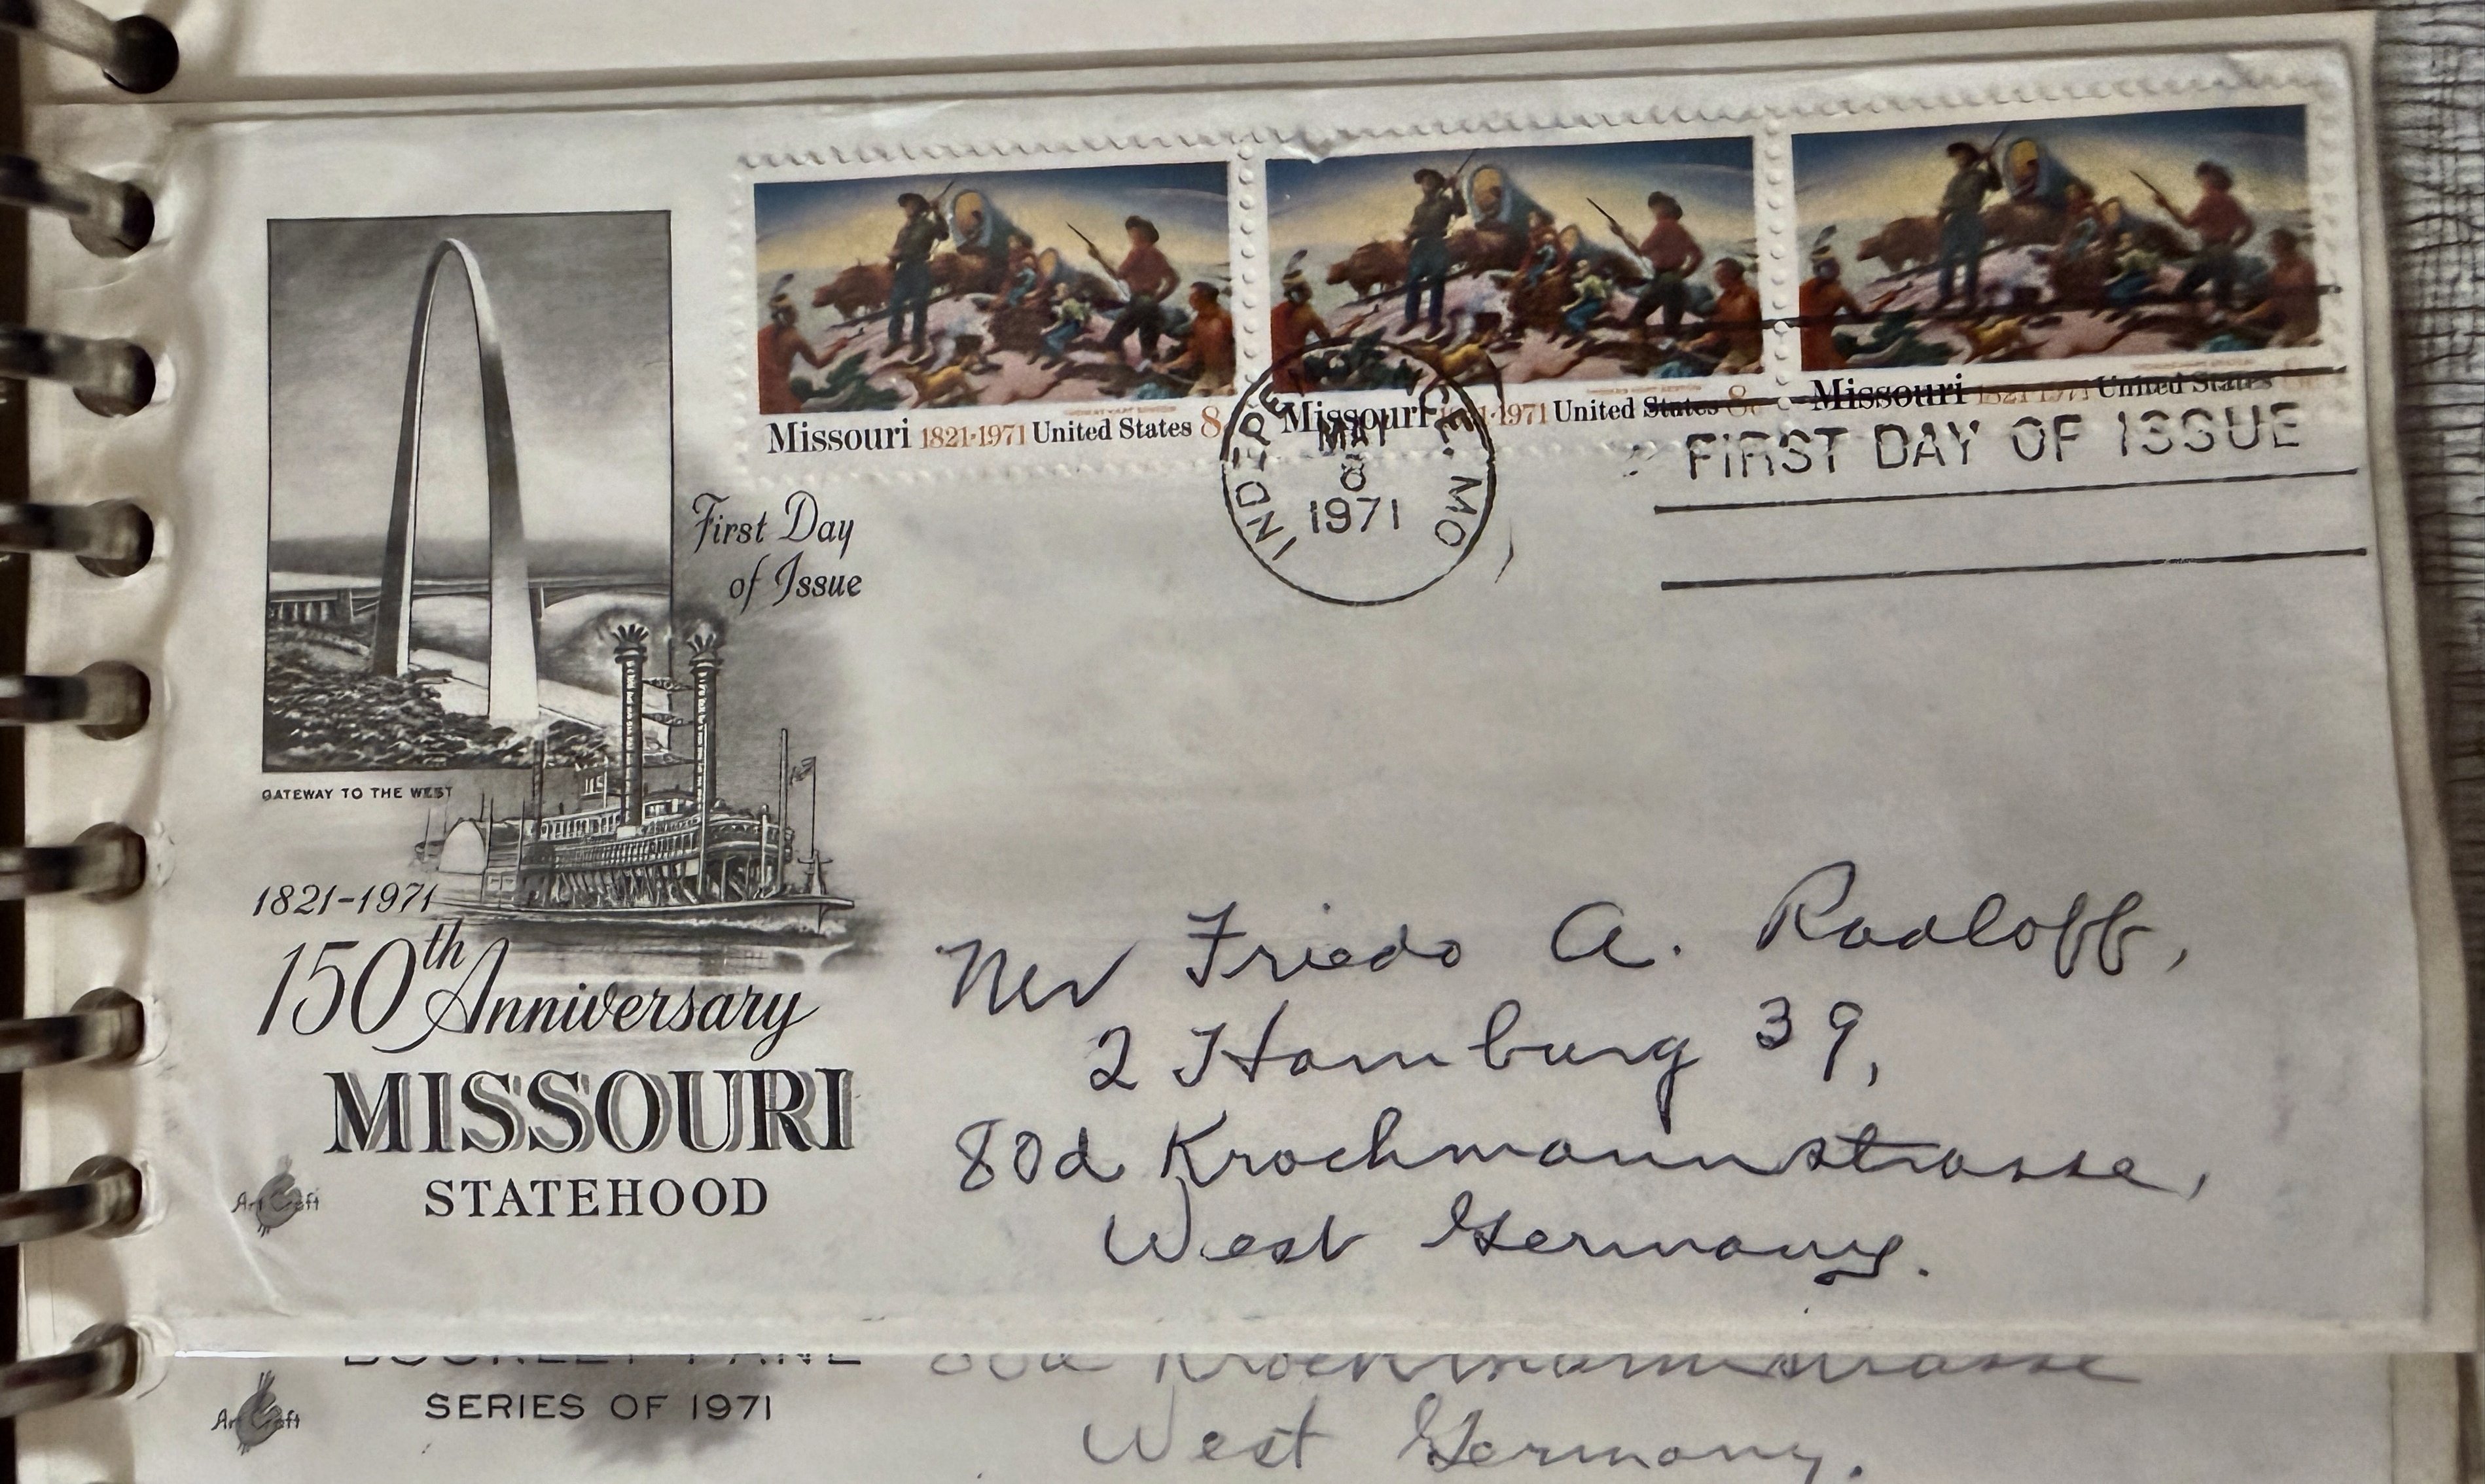 Missouri 1821·1971 United States 8
Missouri 1971 United States 8c
Missouri 1821·1971 United States
INDEPE MO
MAY
8
1971
FIRST DAY OF ISSUE
First Day
of Issue
GATEWAY TO THE WEST
1821-1971
150th Anniversary
MISSOURI
STATEHOOD
Art Craft
Mr Friedo A. Radloff,
2 Hamburg 39,
80d Krochmannstrasse,
West Germany.
80d Krochmannstrasse
SERIES OF 1971
Art Craft
West Germany.